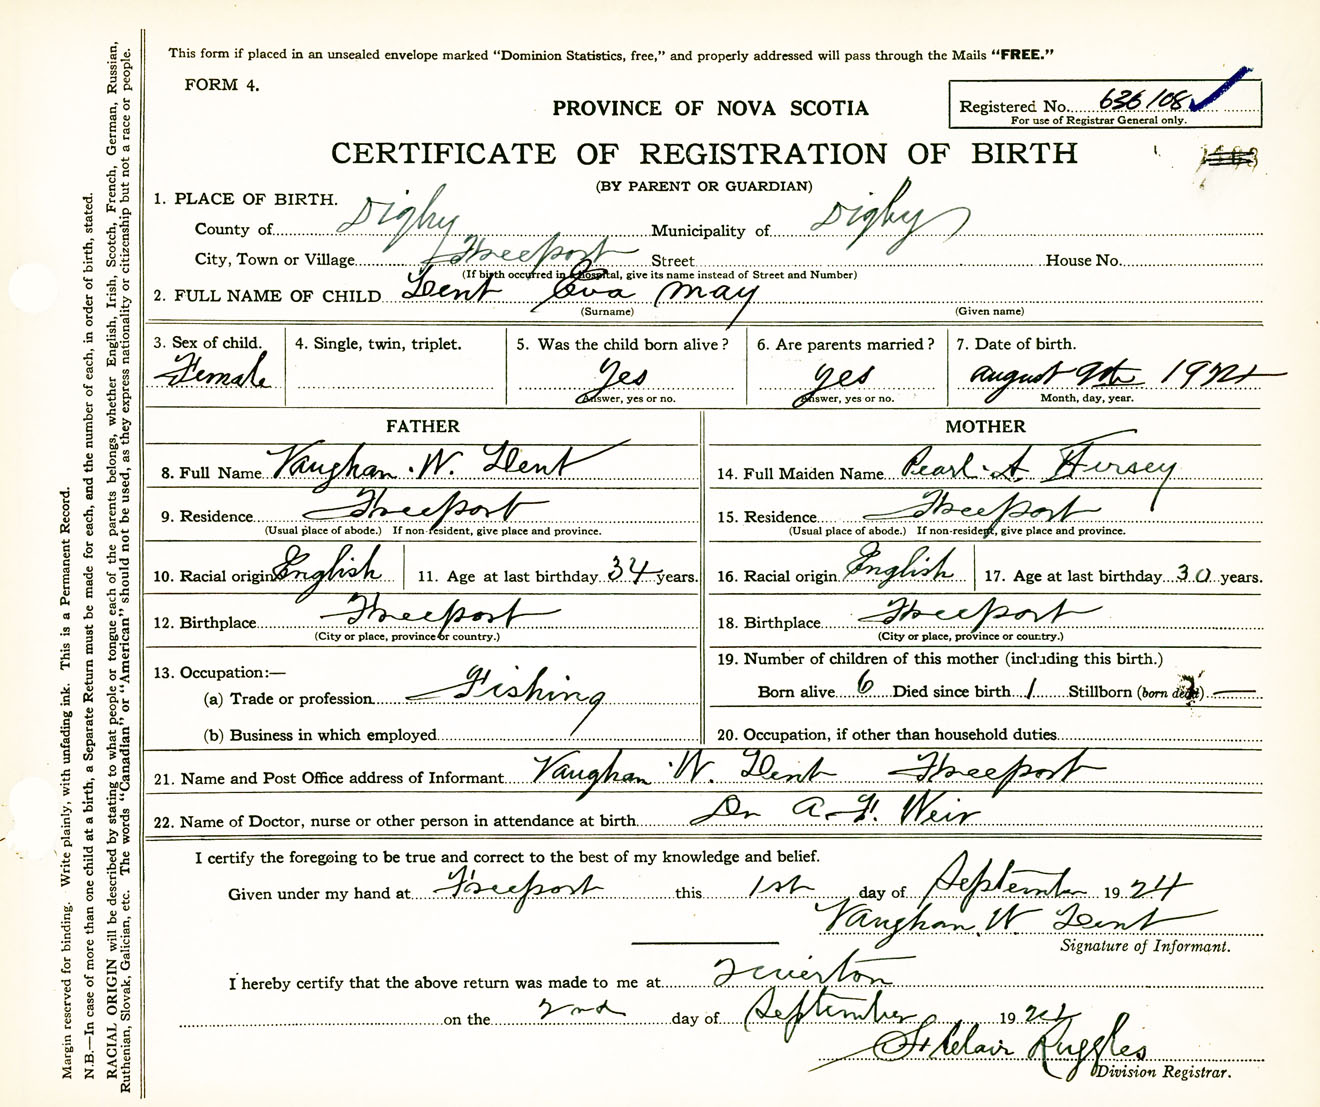 This form if placed in an unsealed envelope marked “Dominion Statistics, free,” and properly addressed will pass through the Mails “FREE.”
FORM 4.
Registered No. 636108
For use of Registrar General only.
PROVINCE OF NOVA SCOTIA
CERTIFICATE OF REGISTRATION OF BIRTH
(BY PARENT OR GUARDIAN)
1. PLACE OF BIRTH.
County of Digby Municipality of Digby
City, Town or Village Freeport Street House No.
(If birth occurred in a hospital, give its name instead of Street and Number)
2. FULL NAME OF CHILD Dent Eva May
(Surname) (Given name)
3. Sex of child. 4. Single, twin, triplet. 5. Was the child born alive? 6. Are parents married? 7. Date of birth.
Female Yes yes august 9th 1924
Answer, yes or no. Answer, yes or no. Month, day, year.
FATHER MOTHER
8. Full Name Vaughan W. Dent 14. Full Maiden Name Pearl A. Hersey
9. Residence Freeport 15. Residence Freeport
(Usual place of abode.) If non-resident, give place and province. (Usual place of abode.) If non-resident, give place and province.
10. Racial origin English 11. Age at last birthday 34 years. 16. Racial origin English 17. Age at last birthday 30 years.
12. Birthplace Freeport 18. Birthplace Freeport
(City or place, province or country.) (City or place, province or country.)
13. Occupation:— 19. Number of children of this mother (including this birth.)
(a) Trade or profession Fishing Born alive 6 Died since birth 1 Stillborn (born dead) —
(b) Business in which employed 20. Occupation, if other than household duties
21. Name and Post Office address of Informant Vaughan W. Dent Freeport
22. Name of Doctor, nurse or other person in attendance at birth Dr A. F. Weir
I certify the foregoing to be true and correct to the best of my knowledge and belief.
Given under my hand at Freeport this 1st day of September 1924
Vaughan. W. Dent
Signature of Informant.
I hereby certify that the above return was made to me at Tiverton
on the 2nd day of September 1924
St Clair Ruggles
Division Registrar.
Margin reserved for binding. Write plainly, with unfading ink. This is a Permanent Record.
N.B.—In case of more than one child at a birth, a Separate Return must be made for each, and the number of each, in order of birth, stated.
RACIAL ORIGIN will be described by stating to what people or tongue each of the parents belongs, whether English, Irish, Scotch, French, German, Russian,
Ruthenian, Slovak, Galician, etc. The words “Canadian” or “American” should not be used, as they express nationality or citizenship but not a race or people.